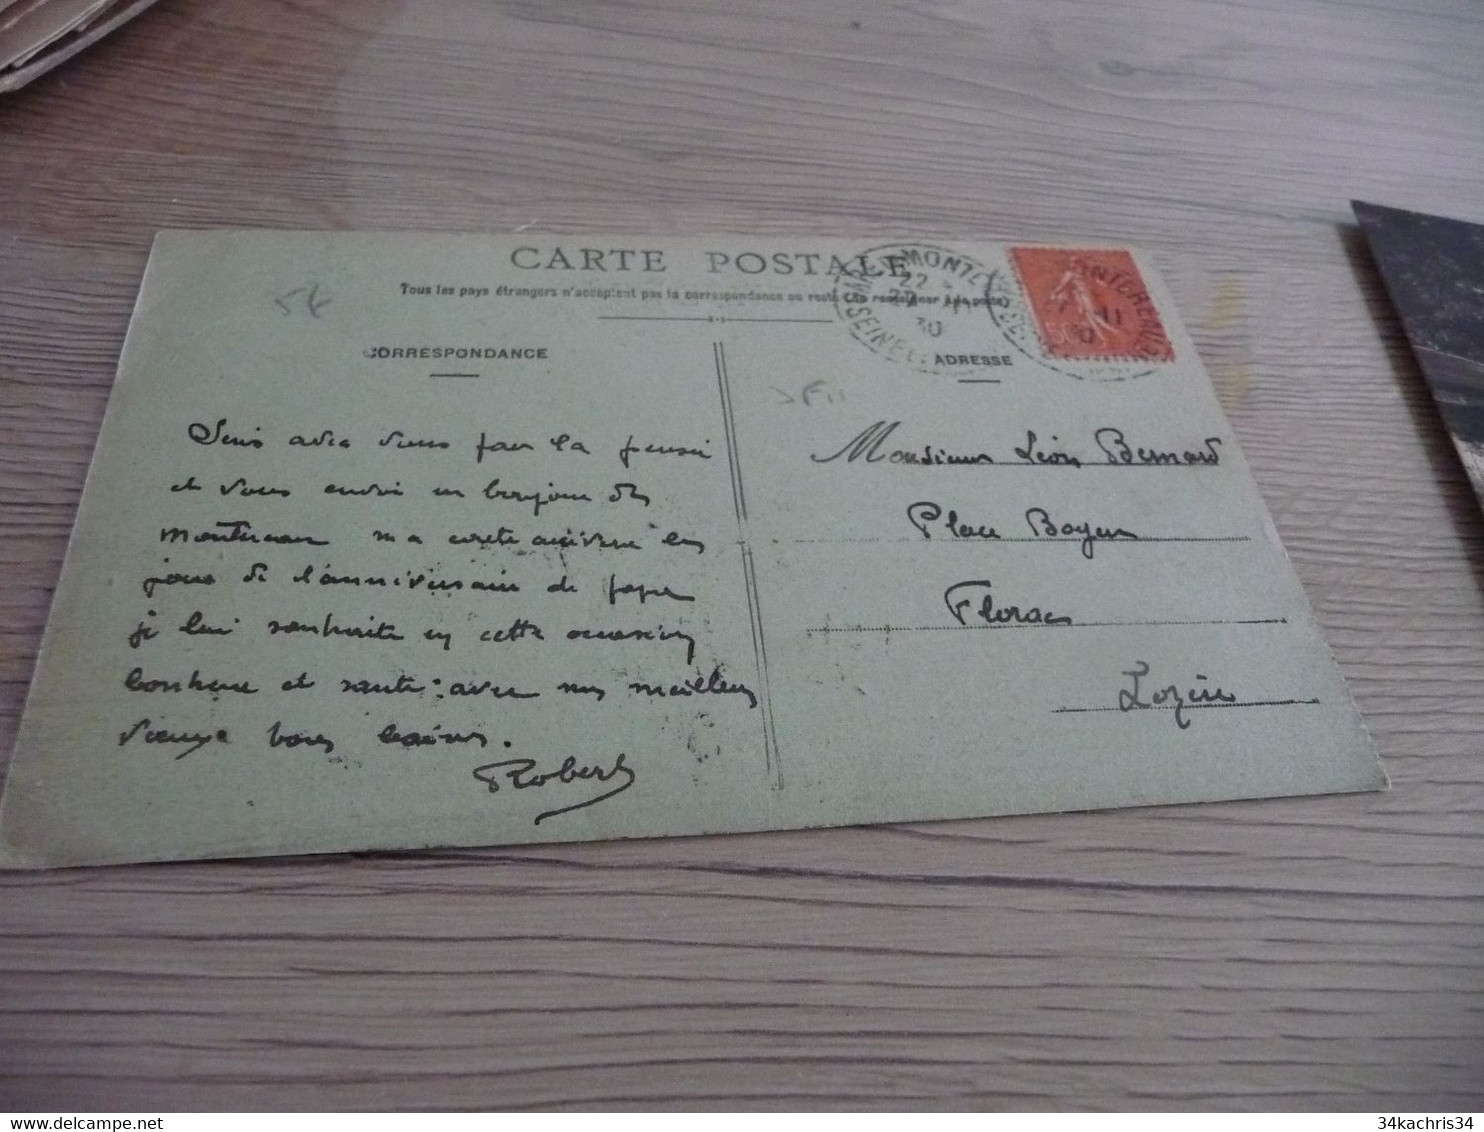 CARTE POSTALE
Tous les pays étrangers n'acceptent pas la correspondance au recto (Se renseigner à la poste)
CORRESPONDANCE
ADRESSE
22
30
SEINE
11
5€
Suis avec vous par la pensée
et vous envoi un bonjour de
Montereau ma carte arrivera les
jour de l'anniversaire de papa
je lui souhaite en cette occasion
bonheur et santé: avec mes meilleurs
vieux bons baisers.
Robert
Monsieur Léon Bernard
Place Boyer
Florac
Lozère
34kachris34